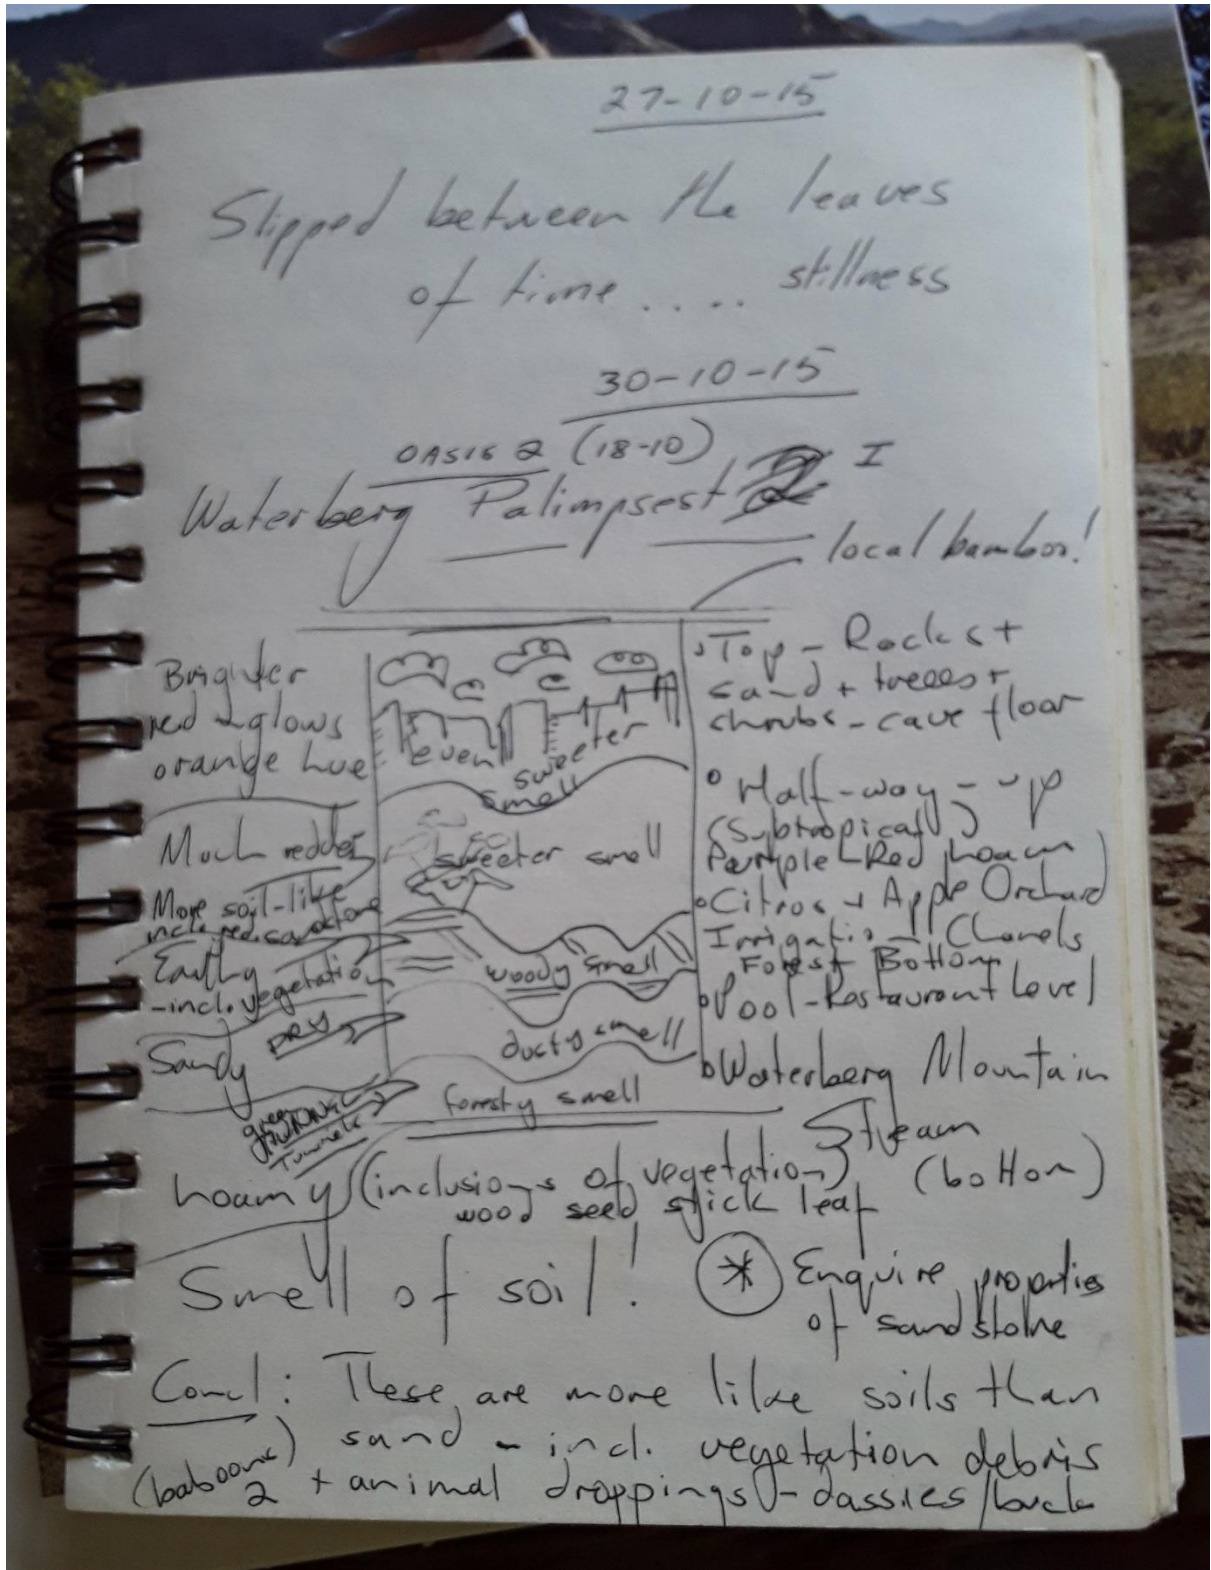 27-10-15
Slipped between the leaves
of time .... stillness
30-10-15
OASIS 2 (18-10)
Waterberg Palimpsest I
local bamboo!
Brighter
red + glows
orange hue
Much redder
More soil-like
incl. red sandstone
Earthy
-incl. vegetation
DRY
Sandy
Tunnels
even sweeter
smell
sweeter smell
woody smell
dusty smell
foresty smell
Top - Rocks +
sand + trees +
shrubs - cave floor
Half-way-up
(Subtropical)
Purple-Red loam)
Citros + Apple Orchard
Irrigation Chanels
Forest Bottom
Pool-Restaurant Level
Waterberg Mountain
Stream
(bottom)
Loamy (inclusions of vegetation)
wood seed stick leaf
Smell of soil!
* Enquire properties
of sandstone
Concl: These are more like soils than
sand - incl. vegetation debris
(baboons)
2 + animal droppings - dassies/buck